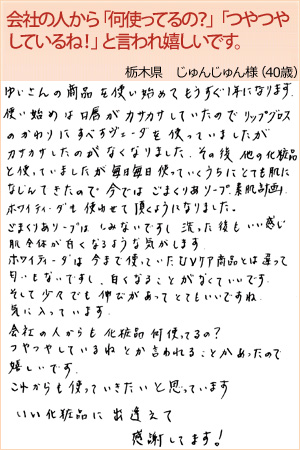 会社の人から「何使ってるの?」「つやつや
しているね!」と言われ嬉しいです。
栃木県 じゅんじゅん様(40歳)
ゆいさんの商品を使い始めてもうすぐ1年になります。
使い始めは口唇がカサカサしていたのでリップグロス
のかわりにすべすべヴェーダを使っていましたが
カサカサしたのがなくなりました。その後 他の化粧品
と使っていましたが毎日毎日使っていくうちにとても肌に
なじんできたので 今では ごまくりあソープ、素肌計画、
ホワイティーダも使わせて頂くようになりました。
ごまくりあソープは しみないですし 洗った後も いい感じ
肌全体が白くなるような気がします。
ホワイティーダは今まで使っていたUVケア商品とは違って
匂いもないですし、白くなることがなくていいです。
そして少々でも伸びがあってとてもいいですね。
気に入っています。
会社の人からも 化粧品 何使ってるの?
つやつやしているね とか言われることがあったので
嬉しいです。
これからも使っていきたいと思っています
いい化粧品に出逢えて
感謝してます!